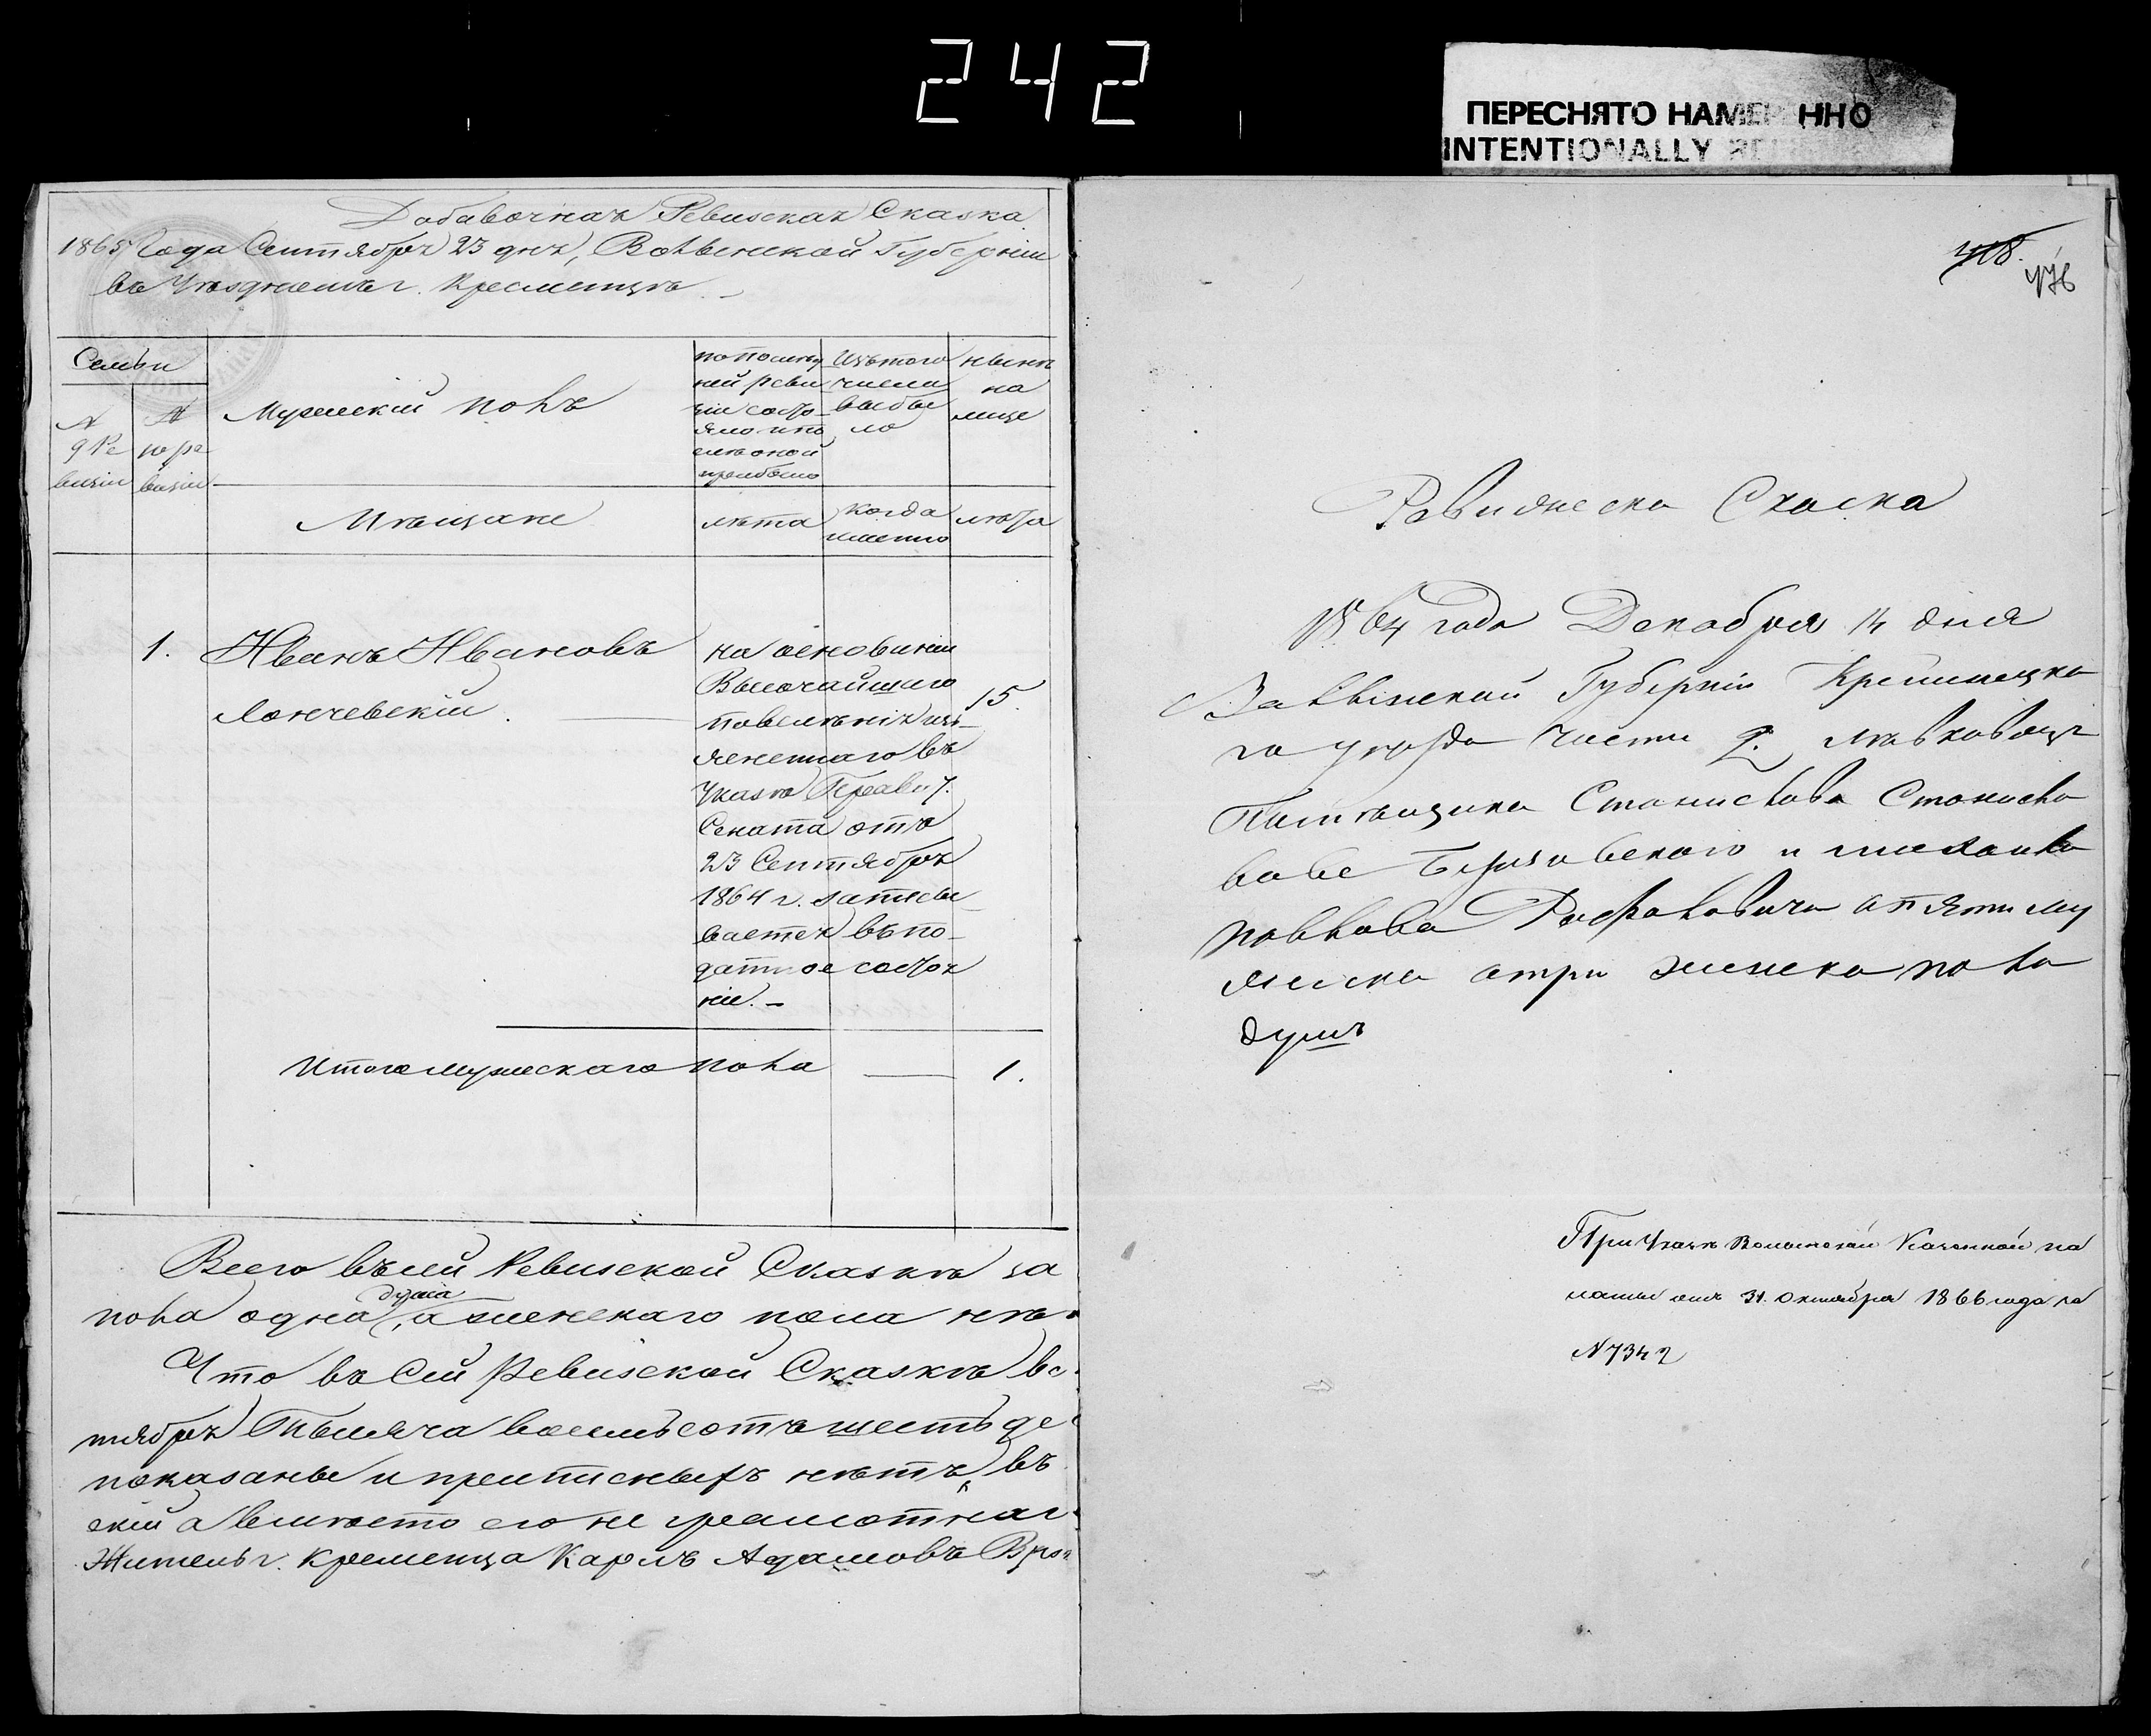 242
ПЕРЕСНЯТО НАМЕ ННО
INTENTIONALLY
Добавочная Ревизская Сказка
1865 Года Сентября 23 дня, Волынской Губернии
въ Уездномъ г. Кременцѣ
Семьи
№
9 Ре
визіи
№
по ре
визіи
Мужескій полъ
по послѣд
ней реви
зіи состо-
яло и по
слѣ оной
прибыло
Изъ того
числа
выбы
ло
нынѣ
на
лице
Мѣщане
лѣта
когда
именно
лѣта
1.
Иванъ Ивановъ
Лончевскій.
на основаніи
Высочайшаго
повелѣнія изъ-
ясненнаго въ
Указѣ Правит.
Сената отъ
23 Сентября
1864 г. записы-
вается въ по-
датное состоя
ніе. -
15.
Итого мужескаго пола
1.
Всего въ сей Ревизской Сказкѣ за
душа
пола одна, а женскаго пола нѣ
Что въ Сей Ревизской Сказкѣ вс
тября Тысяча восемьсотъ шестьде
показаны и прописныхъ нѣтъ, въ
скій а вмѣсто его не грамотнаг
Житель г. Кременца Карлъ Адамовъ
418.
476
Ревижеска Скаска
1864 года Декабря 14 дня
Валвинской Губерніи Кременецка
го уезда части 2. 
Станислава Станисла
вова и
Павлова а пяти му
жеска а три женска пола
душъ
При Указѣ Волынской Казенной па
латы отъ 31. Октября 1866 года за
№ 7342